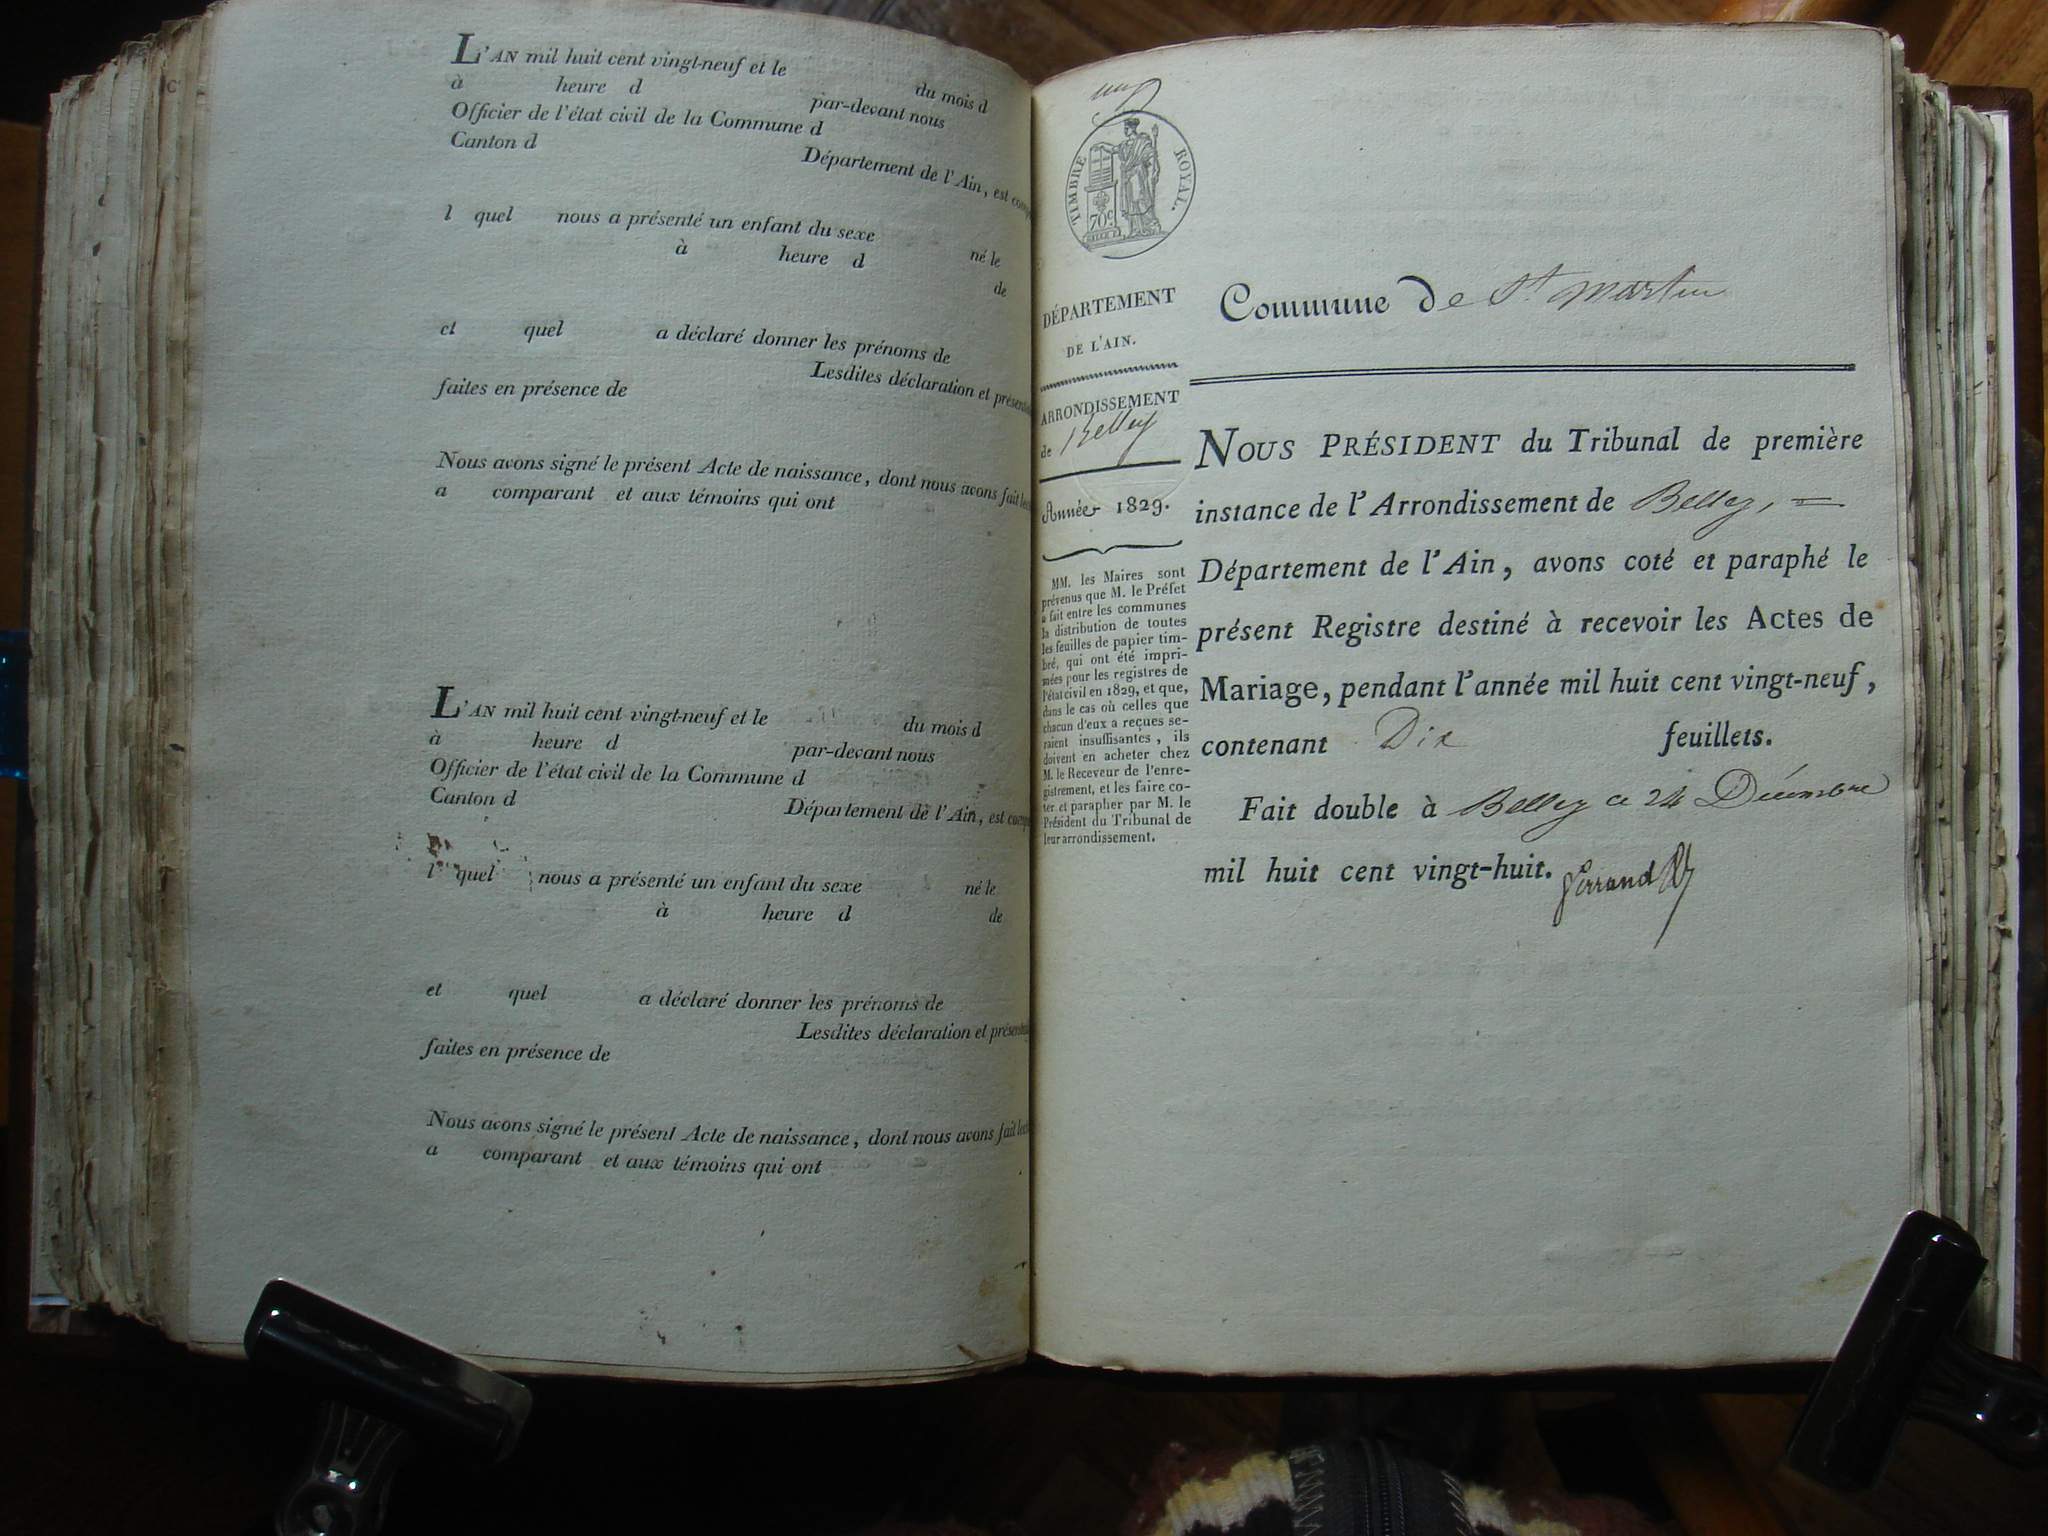 L'AN mil huit cent vingt-neuf et le du mois d
à heure d par-devant nous
Officier de l'état civil de la Commune d
Canton d Département de l'Ain, est
l quel nous a présenté un enfant du sexe né le
à heure d de
et quel a déclaré donner les prénoms de
Lesdites déclaration et
faites en présence de
Nous avons signé le présent Acte de naissance, dont nous avons fait
a comparant et aux témoins qui ont
L'AN mil huit cent vingt-neuf et le du mois d
à heure d par-devant nous
Officier de l'état civil de la Commune d
Canton d Département de l'Ain, est
l quel nous a présenté un enfant du sexe né le
à heure d de
et quel a déclaré donner les prénoms de
Lesdites déclaration et
faites en présence de
Nous avons signé le présent Acte de naissance, dont nous avons fait
a comparant et aux témoins qui ont
TIMBRE ROYAL.
70c
DÉPARTEMENT
DE L'AIN.
ARRONDISSEMENT
de Belley
Année 1829.
MM. les Maires sont
prévenus que M. le Préfet
a fait entre les communes
la distribution de toutes
les feuilles de papier tim-
bré, qui ont été impri-
mées pour les registres de
l'état civil en 1829, et que,
dans le cas où celles que
chacun d'eux a reçues se-
raient insuffisantes, ils
doivent en acheter chez
M. le Receveur de l'enre-
gistrement, et les faire co-
ter et parapher par M. le
Président du Tribunal de
leur arrondissement.
Commune De St martin
NOUS PRÉSIDENT du Tribunal de première
instance de l'Arrondissement de Belley, =
Département de l'Ain, avons coté et paraphé le
présent Registre destiné à recevoir les Actes de
Mariage, pendant l'année mil huit cent vingt-neuf,
contenant Dix feuillets.
Fait double à Belley ce 24 Décembre
mil huit cent vingt-huit.